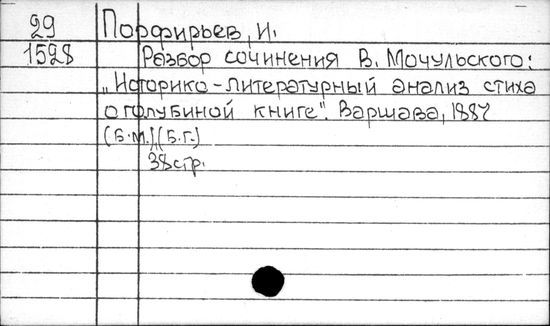 29 Порфирьев, И.
1528 Разбор сочинения В. Мочульского:
„Историко-литературный анализ стиха
о голубиной книге". Варшава, 1887
(Б.М.) (Б.Г.)
38стр.